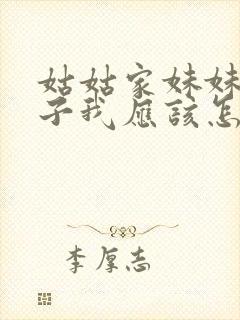 姑姑家妹妹
子我应该怎
李厚志